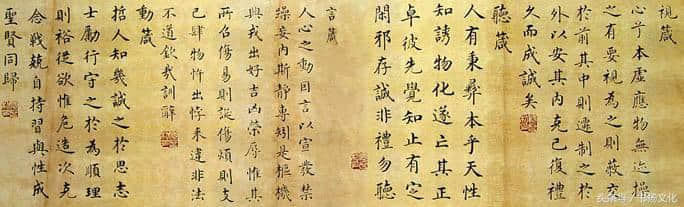 視箴
心兮本虛應物無迹操
之有要視為之則蔽交
於前其中則遷制之於
外以安其內克己復禮
久而成誠矣
聽箴
人有秉彝本乎天性
知誘物化遂亡其正
卓彼先覺知止有定
閑邪存誠非禮勿聽
言箴
人心之動因言以宣發禁
躁妄內斯靜專矧是樞機
興戎出好吉凶榮辱惟其
所召傷易則誕傷煩則支
己肆物忤出悖來違非法
不道欽哉訓辭
動箴
哲人知幾誠之於思志
士勵行守之於為順理
則裕從欲惟危造次克
念戰兢自持習與性成
聖賢同歸
头条号
文化